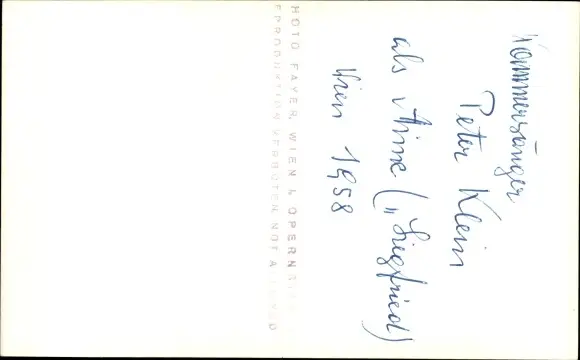 Kammersänger
Peter Klein
als Mime („Siegfried)
Wien 1958
PHOTO FAYER, WIEN I, OPERN
REPRODUKTION VERBOTEN NOT A